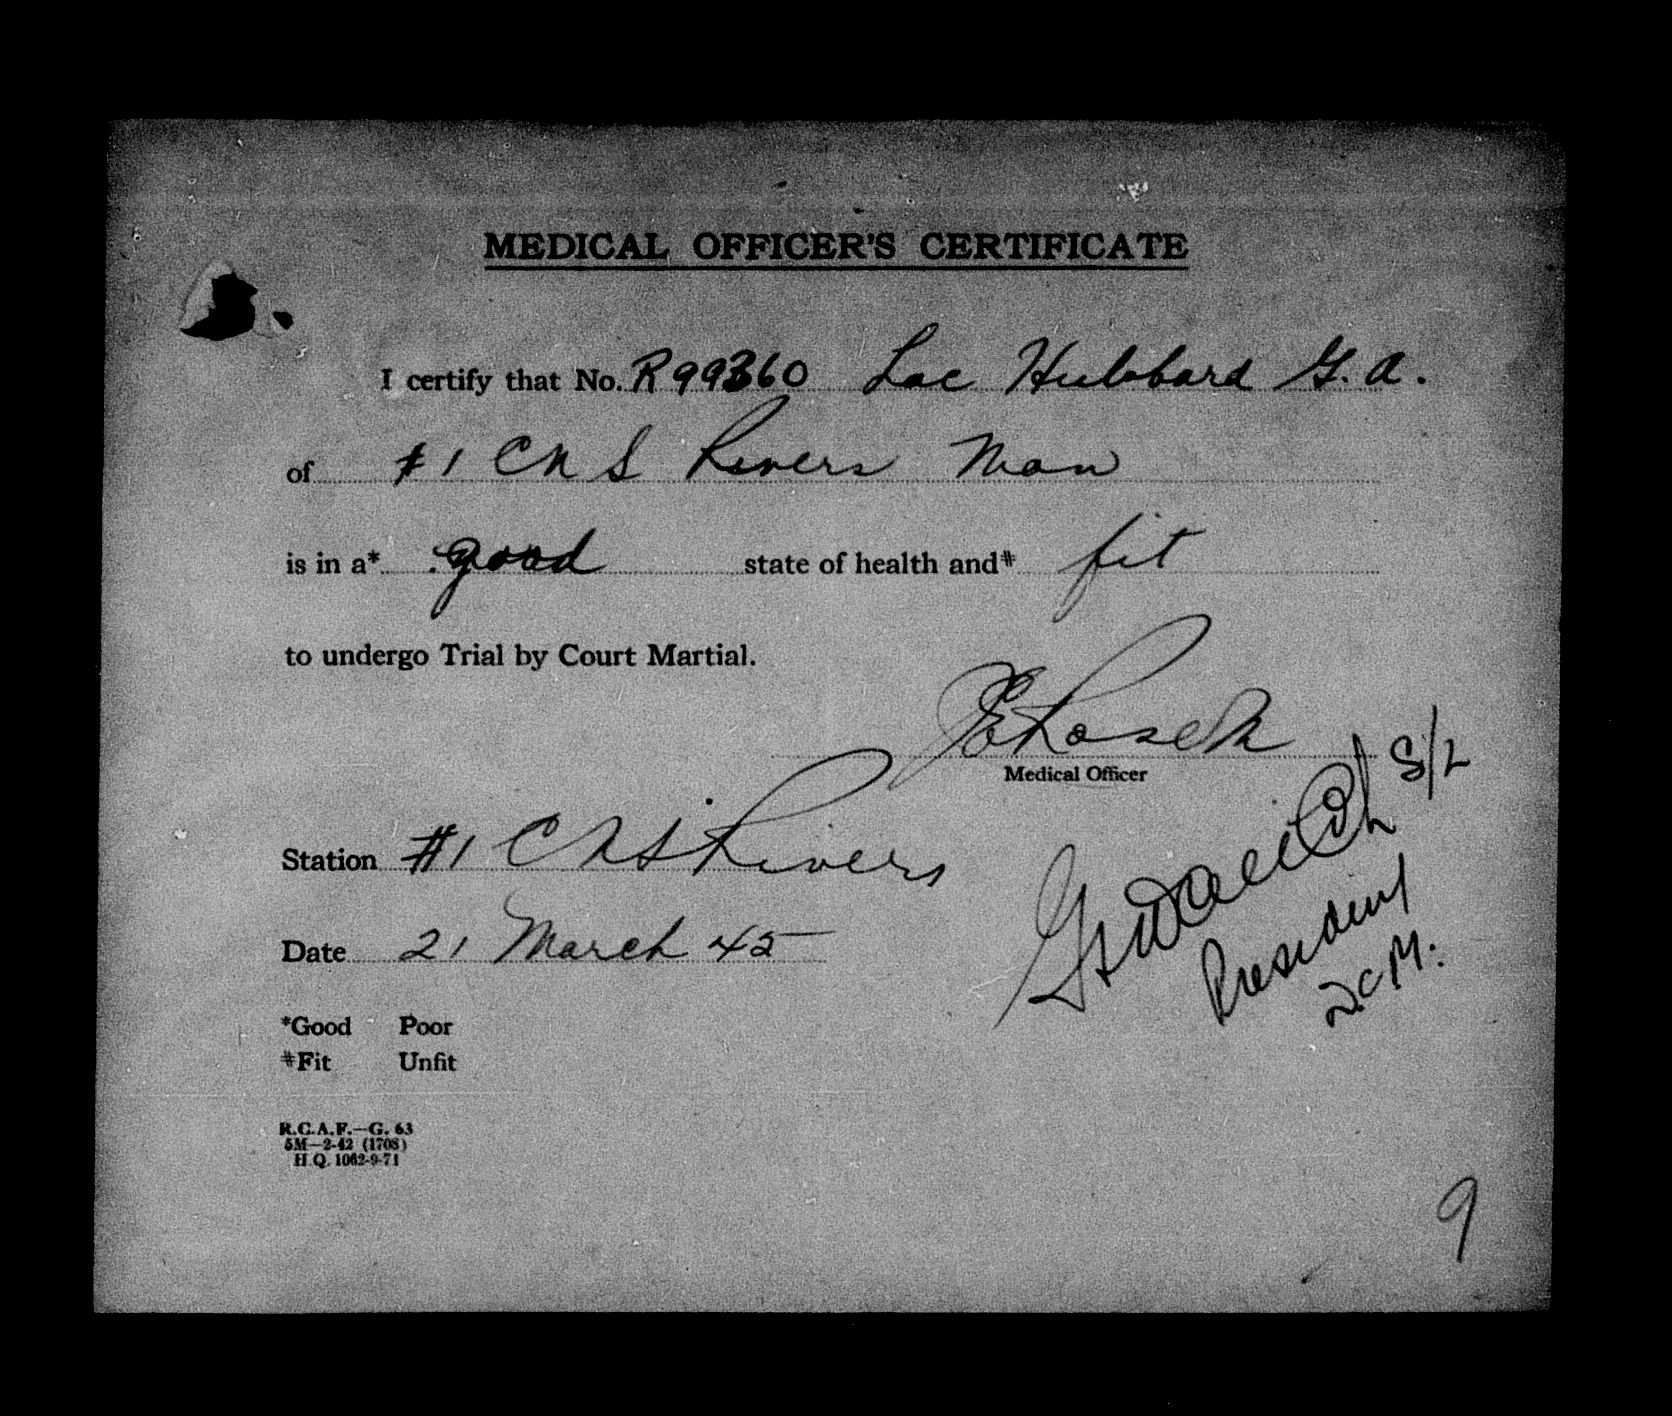 MEDICAL OFFICER'S CERTIFICATE
I certify that No. R99360 Lac Hubbard G. A.
of #1 CNS Rivers Man
is in a* good state of health and# fit
to undergo Trial by Court Martial.
Medical Officer
S/L
Station #1 CNS Rivers
President
D.C.M.
Date 21 March 45
*Good Poor
#Fit Unfit
R.C.A.F.—G. 63
5M—2-42 (1708)
H.Q. 1062-9-71
9